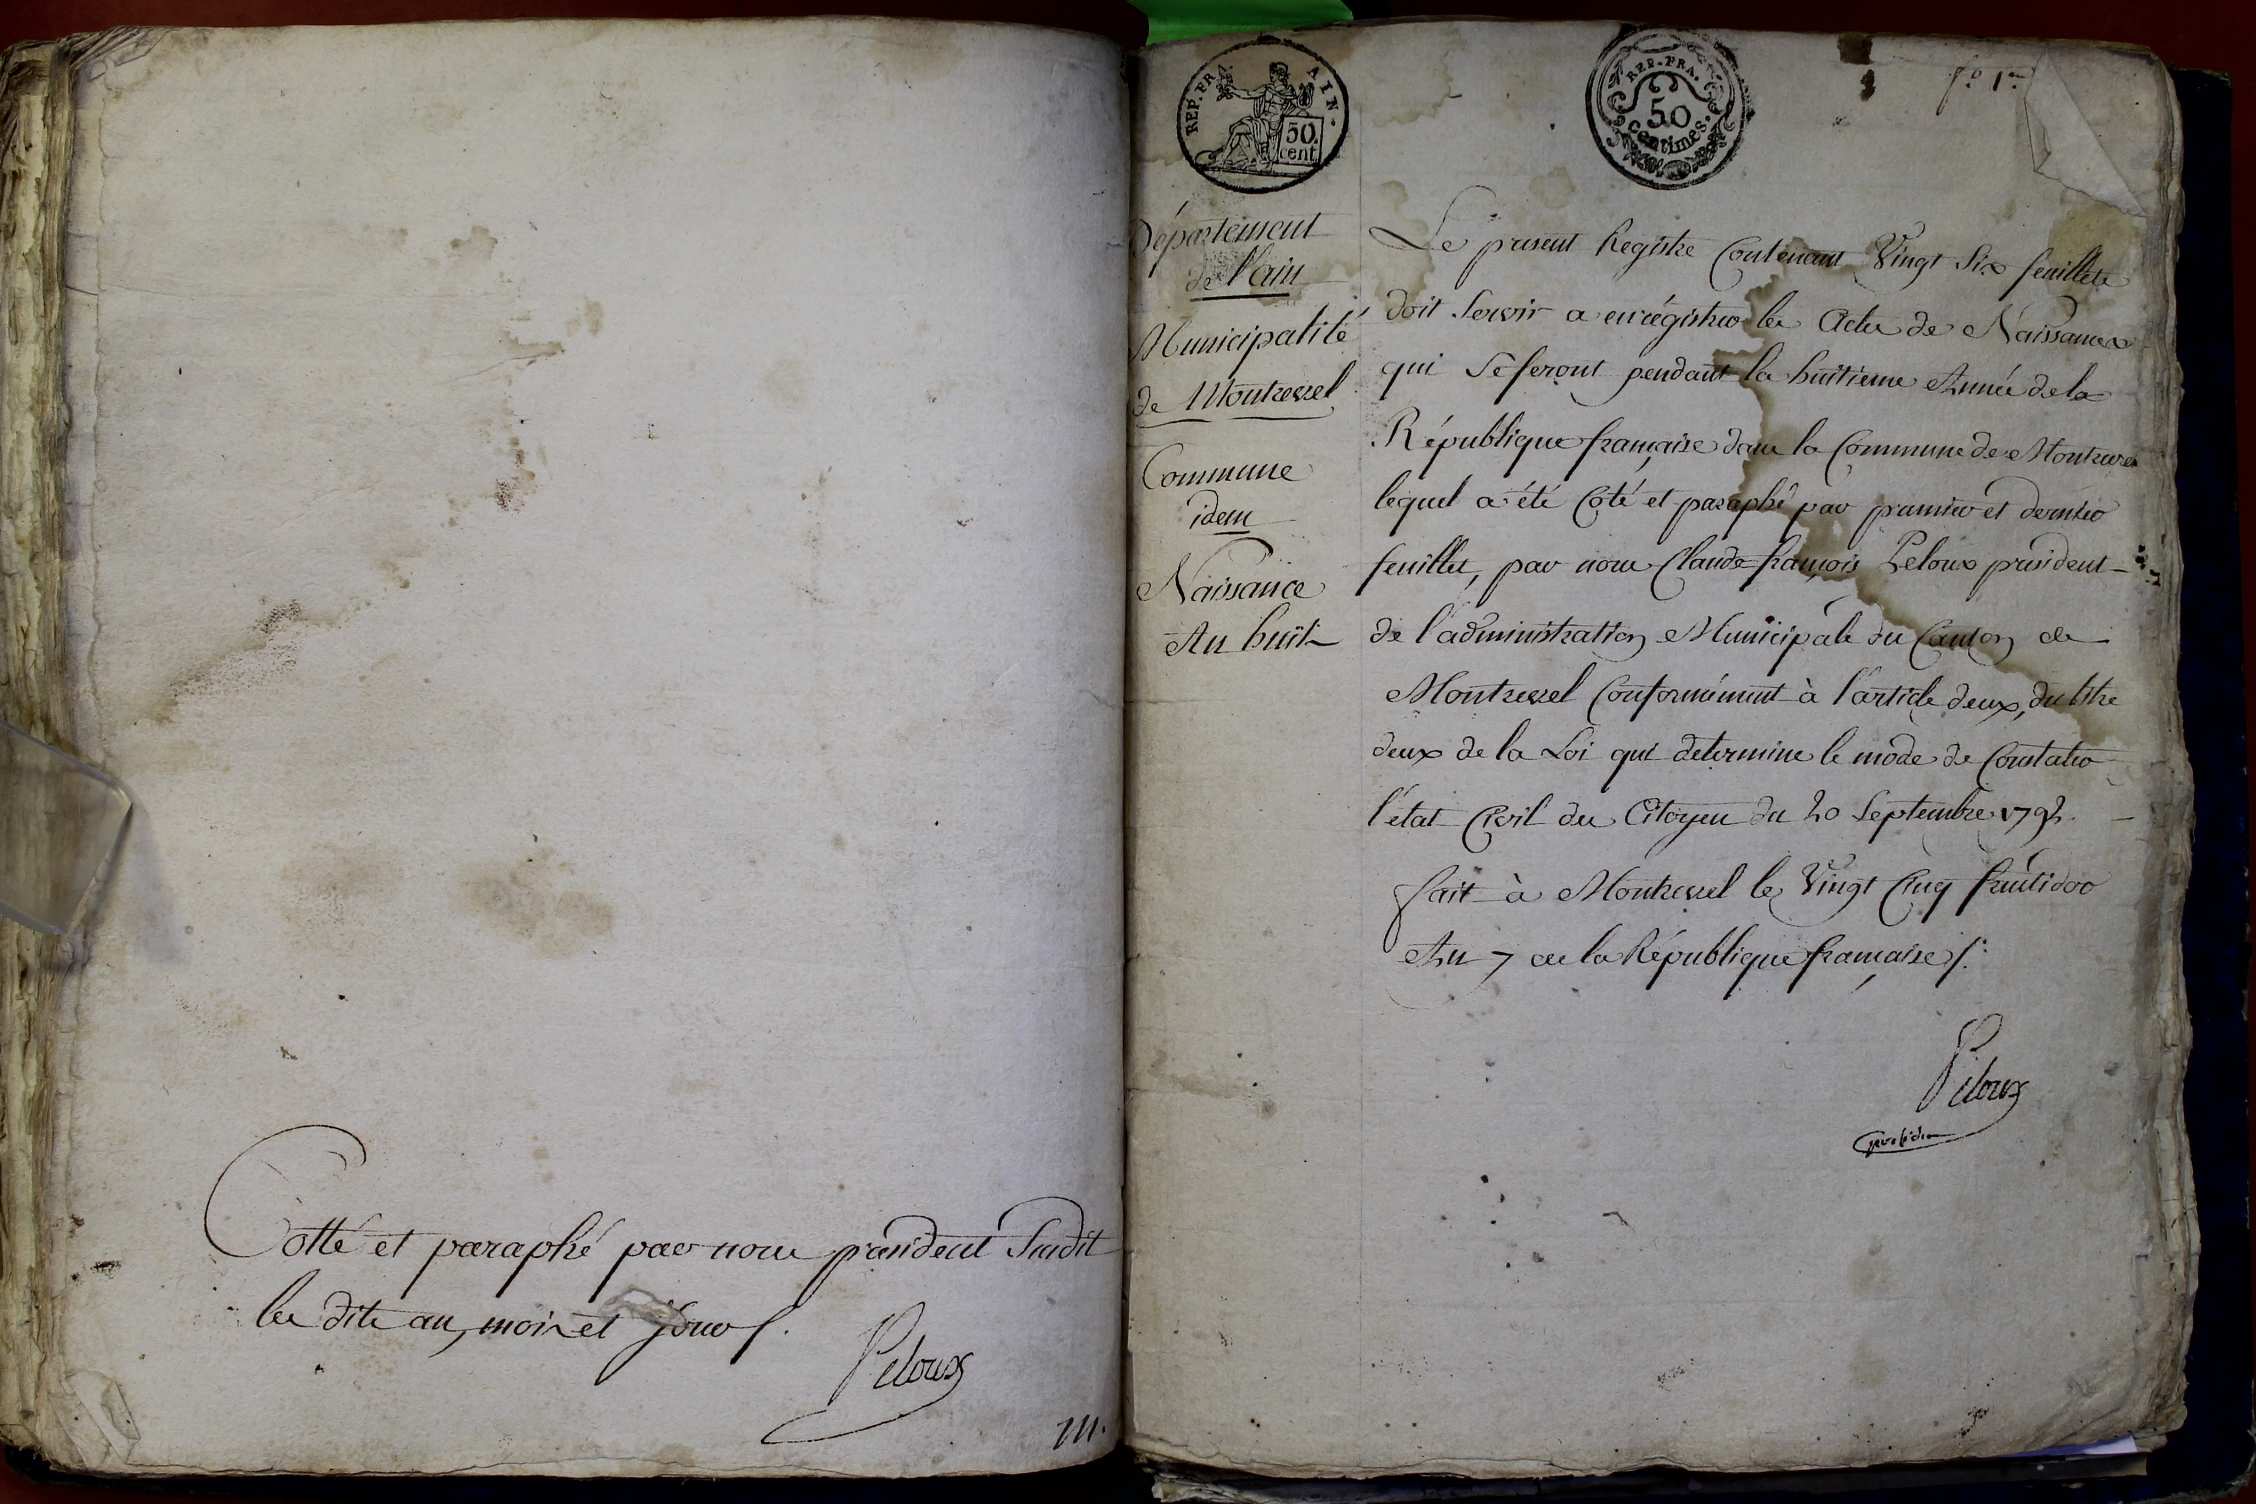 Cotté et paraphé par nous président Susdit
les dits an, mois et jour /.
Peloux
m.
REP. FRA. AIN.
50.
cent.
REP. FRA.
50
centimes.
f.° 1.er
Département
de l'ain
Municipalité
de Montrevel
Commune
idem
Naissance
An huit
Le present Registre Contenant Vingt Six feuillets
doit Servir a enrégistrer les Actes de Naissances
qui Se feront pendant la huitieme Année de la
République française dans la Commune de Montrevel
lequel a été Coté et paraphé par premier et dernier
feuillet, par nous Claude françois Peloux président
de l'administration Municipale du Canton de
Montrevel Conformément à l'article deux, du titre
deux de la Loi qui determine le mode de Constater
l'état Civil des Citoyens du 20 Septembre 1792.
fait à Montrevel le Vingt Cinq fructidor
An 7 de la République française /.
Peloux
président